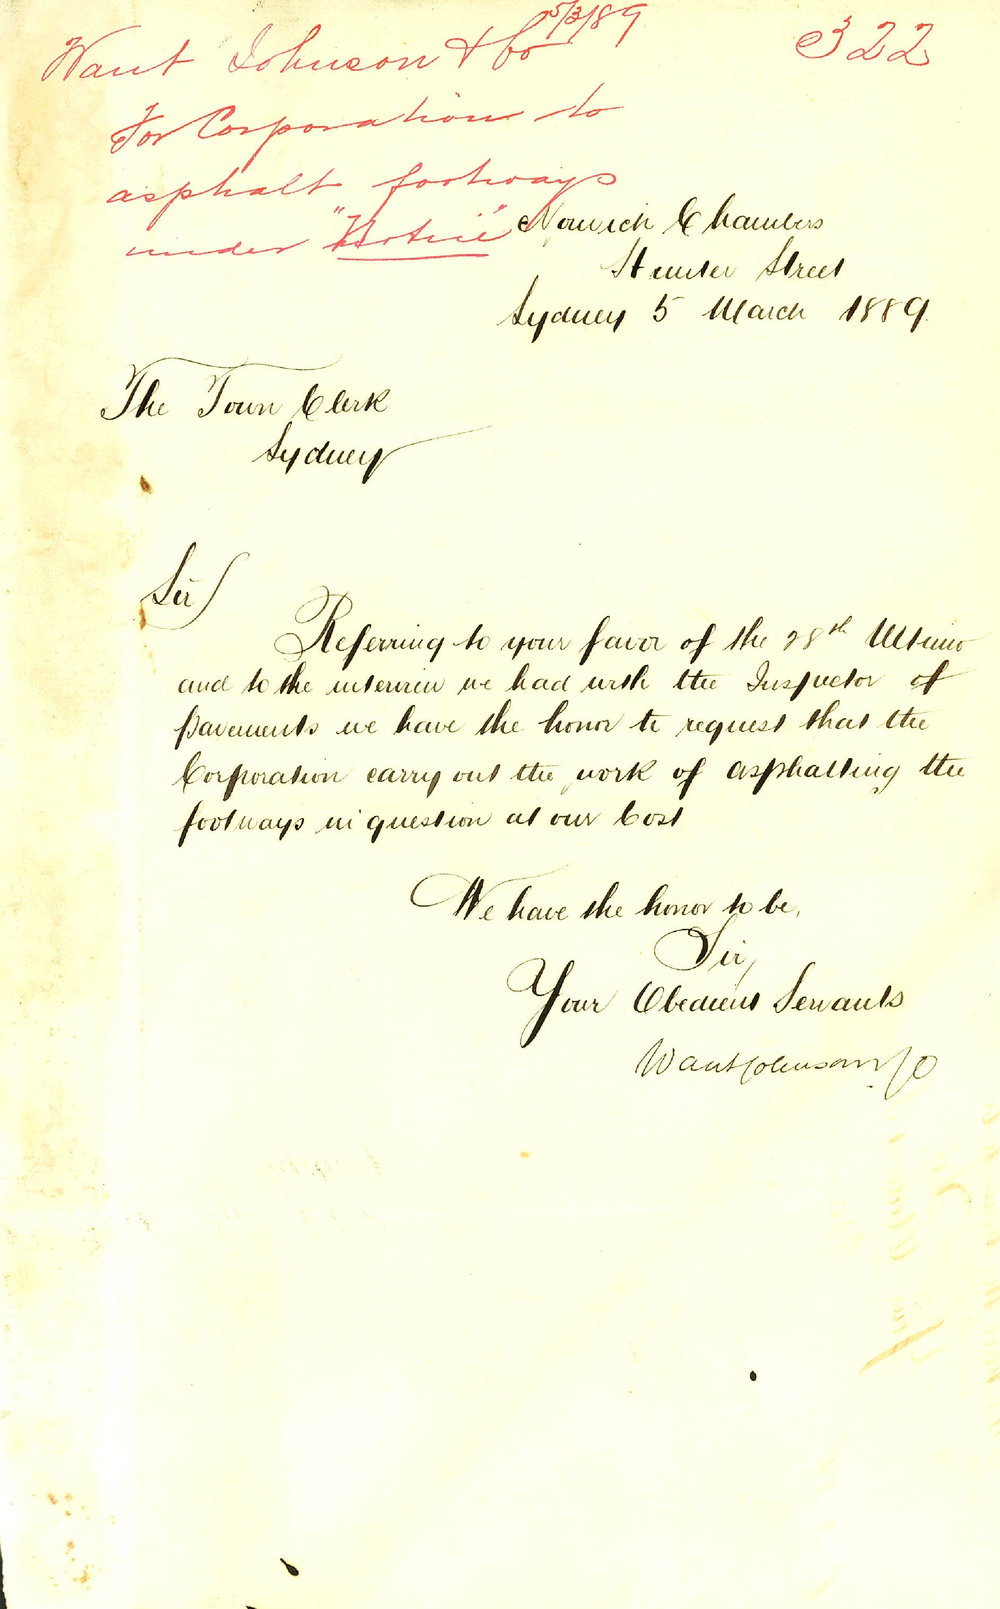 5/3/89
Want Johnson & Co
322
For Corporation to
asphalt footways
under "Notice"
Norwich Chambers
Hunter Street
Sydney 5 March 1889.
The Town Clerk
Sydney
Sir
Referring to your favor of the 28th Ultimo
and to the interview we had with the Inspector of
pavements we have the honor to request that the
Corporation carry out the work of asphalting the
footways in question at our Cost
We have the honor to be,
Sir,
Your Obedient Servants
Want Johnson & Co